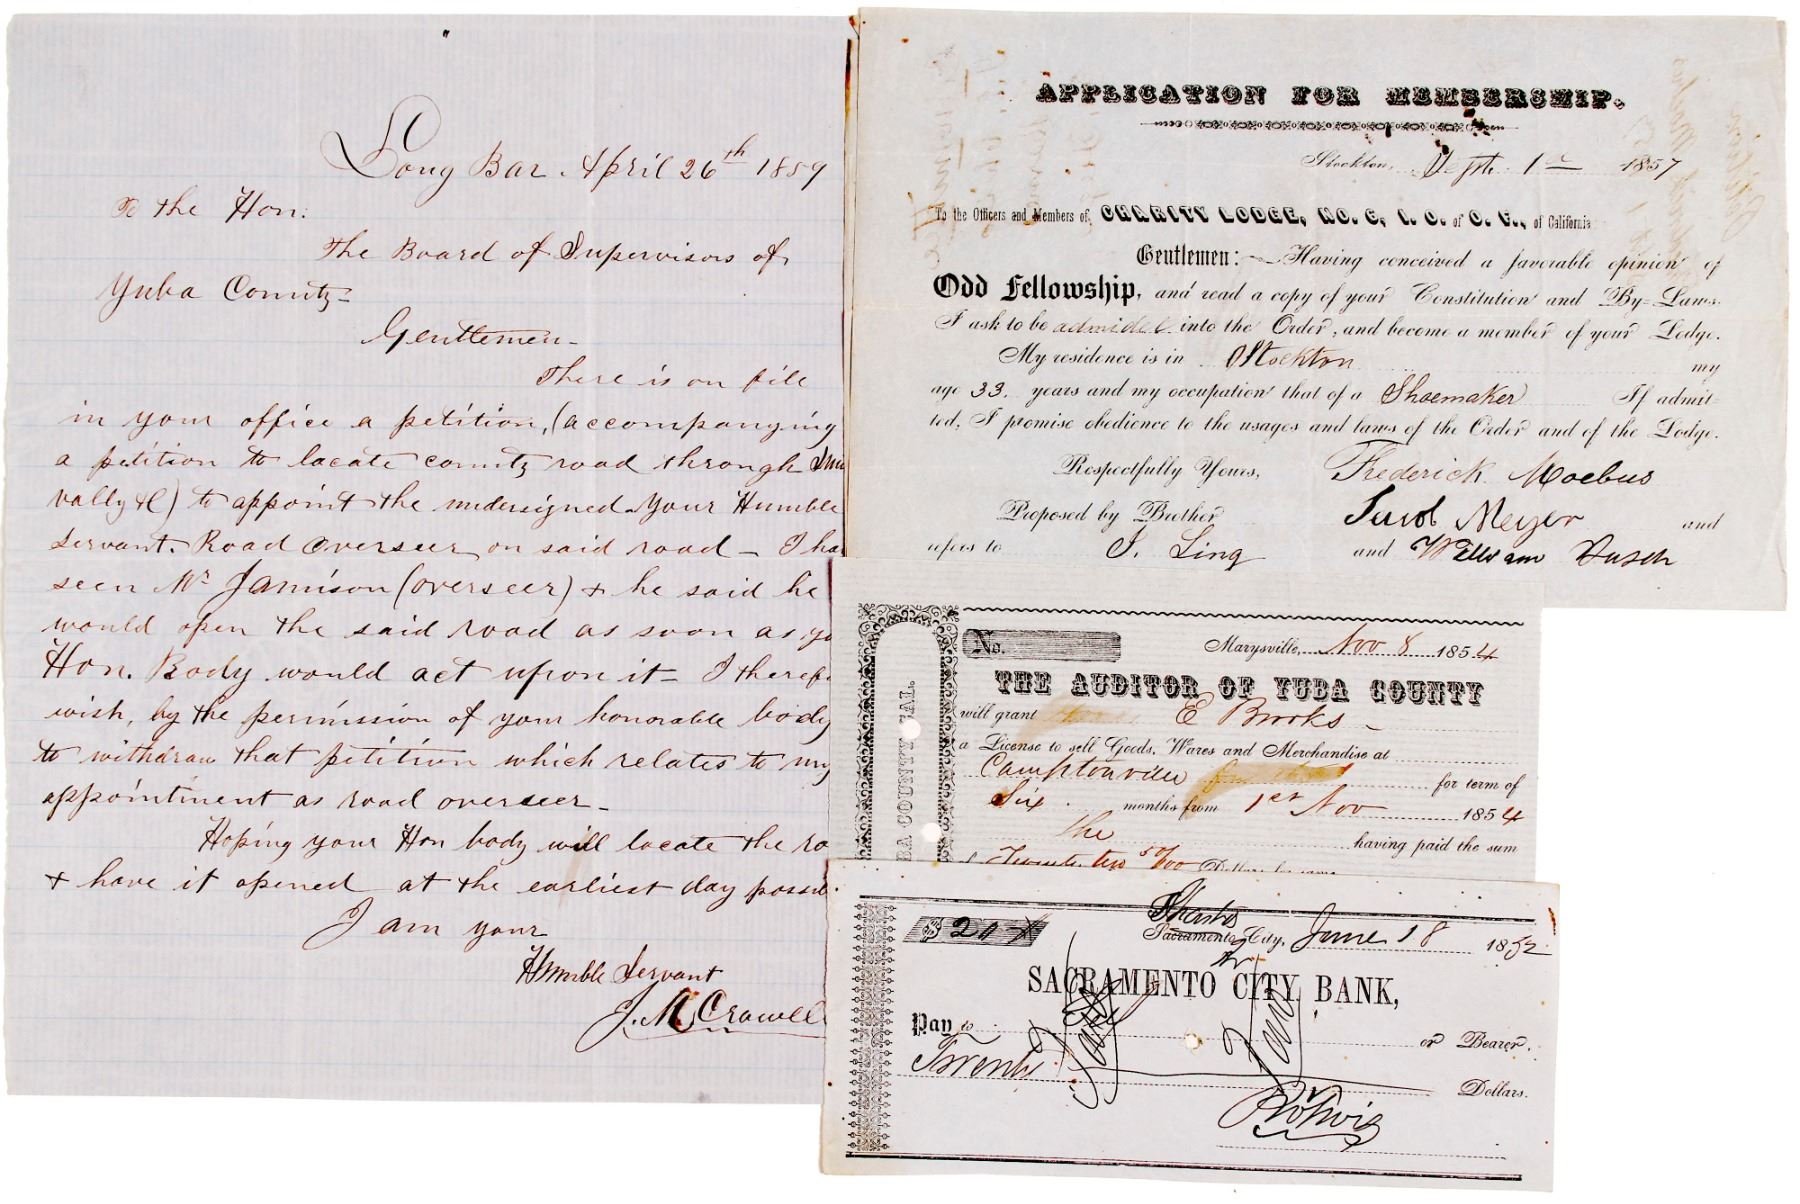 Long Bar. April 26th 1859
To the Hon.
The Board of Supervisors of
Yuba County-
Gentlemen-
There is on file
in your office a petition, (accompanying
a petition to locate county road through
vally &c) to appoint the undersigned your Humble
servant. Road Overseer on said road - I ha
seen Mr Jamison (overseer) & he said he
would open the said road as soon as yo
Hon. Body would act upon it - I theref
wish, by the permission of your honorable body
to withdraw that petition which relates to my
appointment as road overseer -
Hoping your Hon body will locate the ro
& have it opened at the earliest day possi
I am your
Humble Servant
J. M. Crowell
APPLICATION FOR MEMBERSHIP.
Stockton, Sept. 1st 1857
To the Officers and Members of CHARITY LODGE, NO. 6, I. O. of O. F., of California
Gentlemen: Having conceived a favorable opinion of
Odd Fellowship, and read a copy of your Constitution and By-Laws.
I ask to be admided into the Order, and become a member of your Lodge.
My residence is in Stockton my
age 33. years and my occupation that of a Shoemaker If admit
ted, I promise obedience to the usages and laws of the Order and of the Lodge.
Respectfully Yours, Frederick Moebus
Proposed by Brother Jacob Meyer and
refers to J. Ling and William Dusch
No.
Marysville, Nov 8 1854
THE AUDITOR OF YUBA COUNTY
will grant E Brooks
a License to sell Goods, Wares and Merchandise at
Camptonville for term of
Six months from 1st Nov 1854
he having paid the sum
Twenty two 50/00 Dollars
BA COUNTY CAL.
$ 20
Shasta
Sacramento City, June 18 1852
SACRAMENTO CITY BANK,
Pay to or Bearer.
Twenty Dollars.